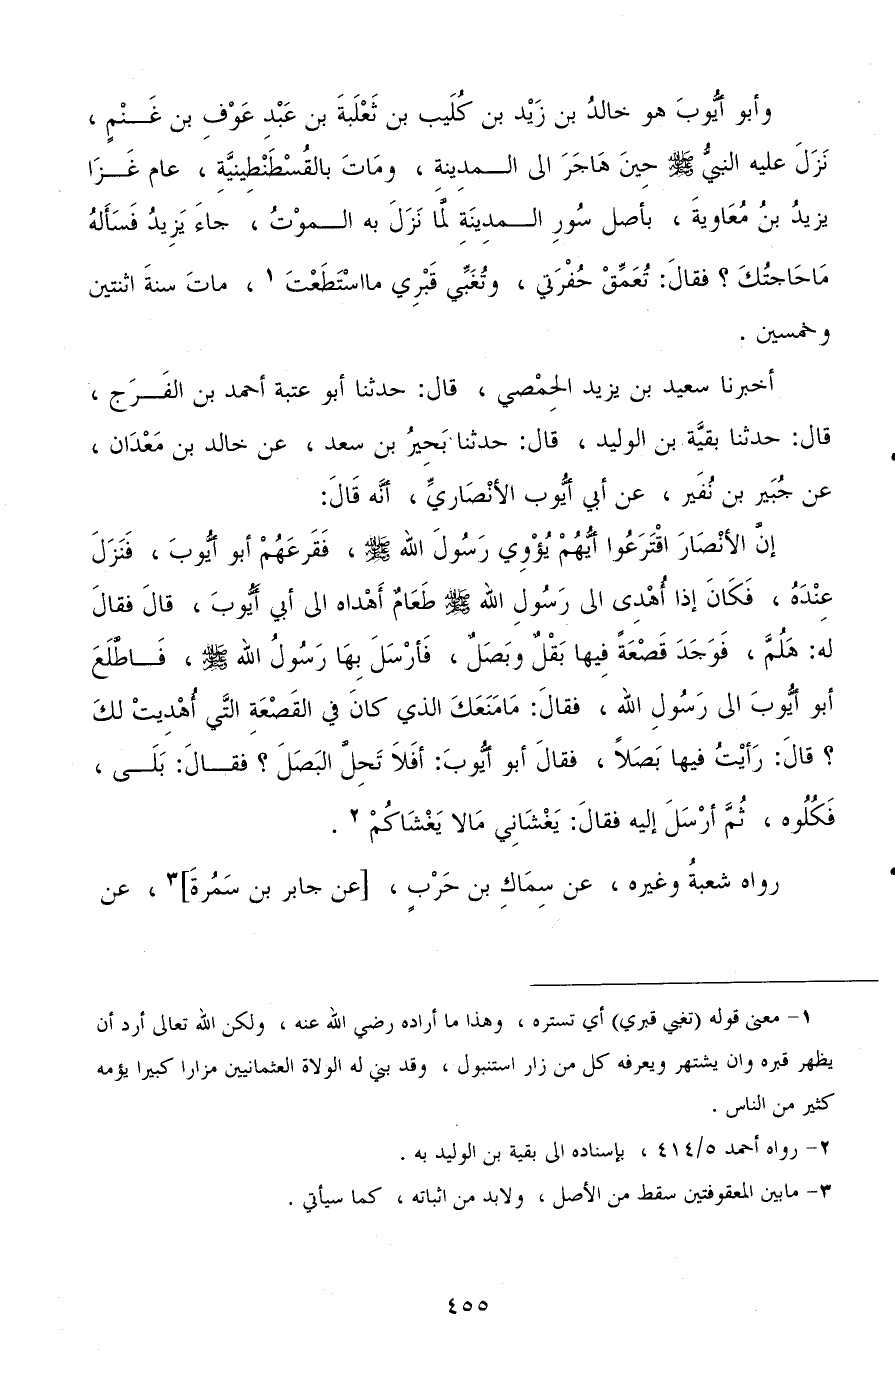 وأبو أيُّوبَ هو خالدُ بن زَيْد بن كُلَيب بن ثَعْلَبَةَ بن عَبْدِ عَوْفِ بن غَـــنْمٍ ،
نَزَلَ عليه النبيُّ ﷺ حِينَ هَاجَرَ الى الـــمدِينةِ ، ومَاتَ بالقُسْطَنْطِينيَّة ، عام غَـــزَا
يزيدُ بنُ مُعَاويةَ ، بأصل سُورِ الـــمدِينَةِ لمَّا نَزَلَ به الـــموْتُ ، جاءَ يَزِيدُ فَسَأَلهُ
مَاحَاجتُكَ ؟ فقالَ: تُعَمِّقْ حُفْرَتي ، وتُغَبِّي قَبْرِي مااسْتَطَعْتَ ١ ، ماتَ سنةَ اثنتين
وخمسين .
أخبرنا سعيد بن يزيد الحِمْصي ، قال: حدثنا أبو عتبة أحمد بن الفَـــرَج ،
قال: حدثنا بقيَّة بن الوليد ، قال: حدثنا بَحيرُ بن سعد ، عن خالد بن مَعْدَان ،
عن جُبَير بن نُفَير ، عن أبي أيُّوب الأنْصَاريِّ ، أنَّه قَالَ:
إنَّ الأنْصَارَ اقْتَرَعُوا أيُّهُمْ يُؤْوِي رَسُولَ الله ﷺ ، فَقَرعَهُمْ أبو أيُّوبَ ، فَنَزَلَ
عِنْدَهُ ، فَكَانَ إذا أُهْدِى الى رَسُولِ الله ﷺ طَعَامٌ أَهْداه الى أبي أَيُّوبَ ، قالَ فقالَ
له: هَلُمَّ ، فَوَجَدَ قَصْعَةً فِيها بَقْلٌ وبَصَلٌ ، فَأرْسَلَ بِهَا رَسُولُ الله ﷺ ، فَـــاطَّلَعَ
أبو أيُّوبَ الى رَسُولِ الله ، فقالَ: مَامَنَعَكَ الذي كانَ في القَصْعَةِ التَّي أُهْدِيتْ لكَ
؟ قالَ: رَأيْتُ فيها بَصَلاً ، فقالَ أبو أيُّوبَ: أفَلاَ تَحلَّ البَصَلَ ؟ فقـــالَ: بَلَـــى ،
فَكُلُوه ، ثُمَّ أرْسَلَ إليه فقالَ: يَغْشَانِي مَالا يَغْشَاكُمْ ٢ .
رواه شعبةُ وغيره ، عن سِمَاكِ بن حَرْبٍ ، [عن جابر بن سَمُرةَ]٣ ، عن
١- معنى قوله (تغبي قبري) أي تستره ، وهذا ما أراده رضي الله عنه ، ولكن الله تعالى أرد أن
يظهر قبره وان يشتهر ويعرفه كل من زار استنبول ، وقد بني له الولاة العثمانيين مزارا كبيرا يؤمه
كثير من الناس .
٢- رواه أحمد ٤١٤/٥ ، بإسناده الى بقية بن الوليد به .
٣- مابين المعقوفتين سقط من الأصل ، ولابد من اثباته ، كما سيأتي .
٤٥٥